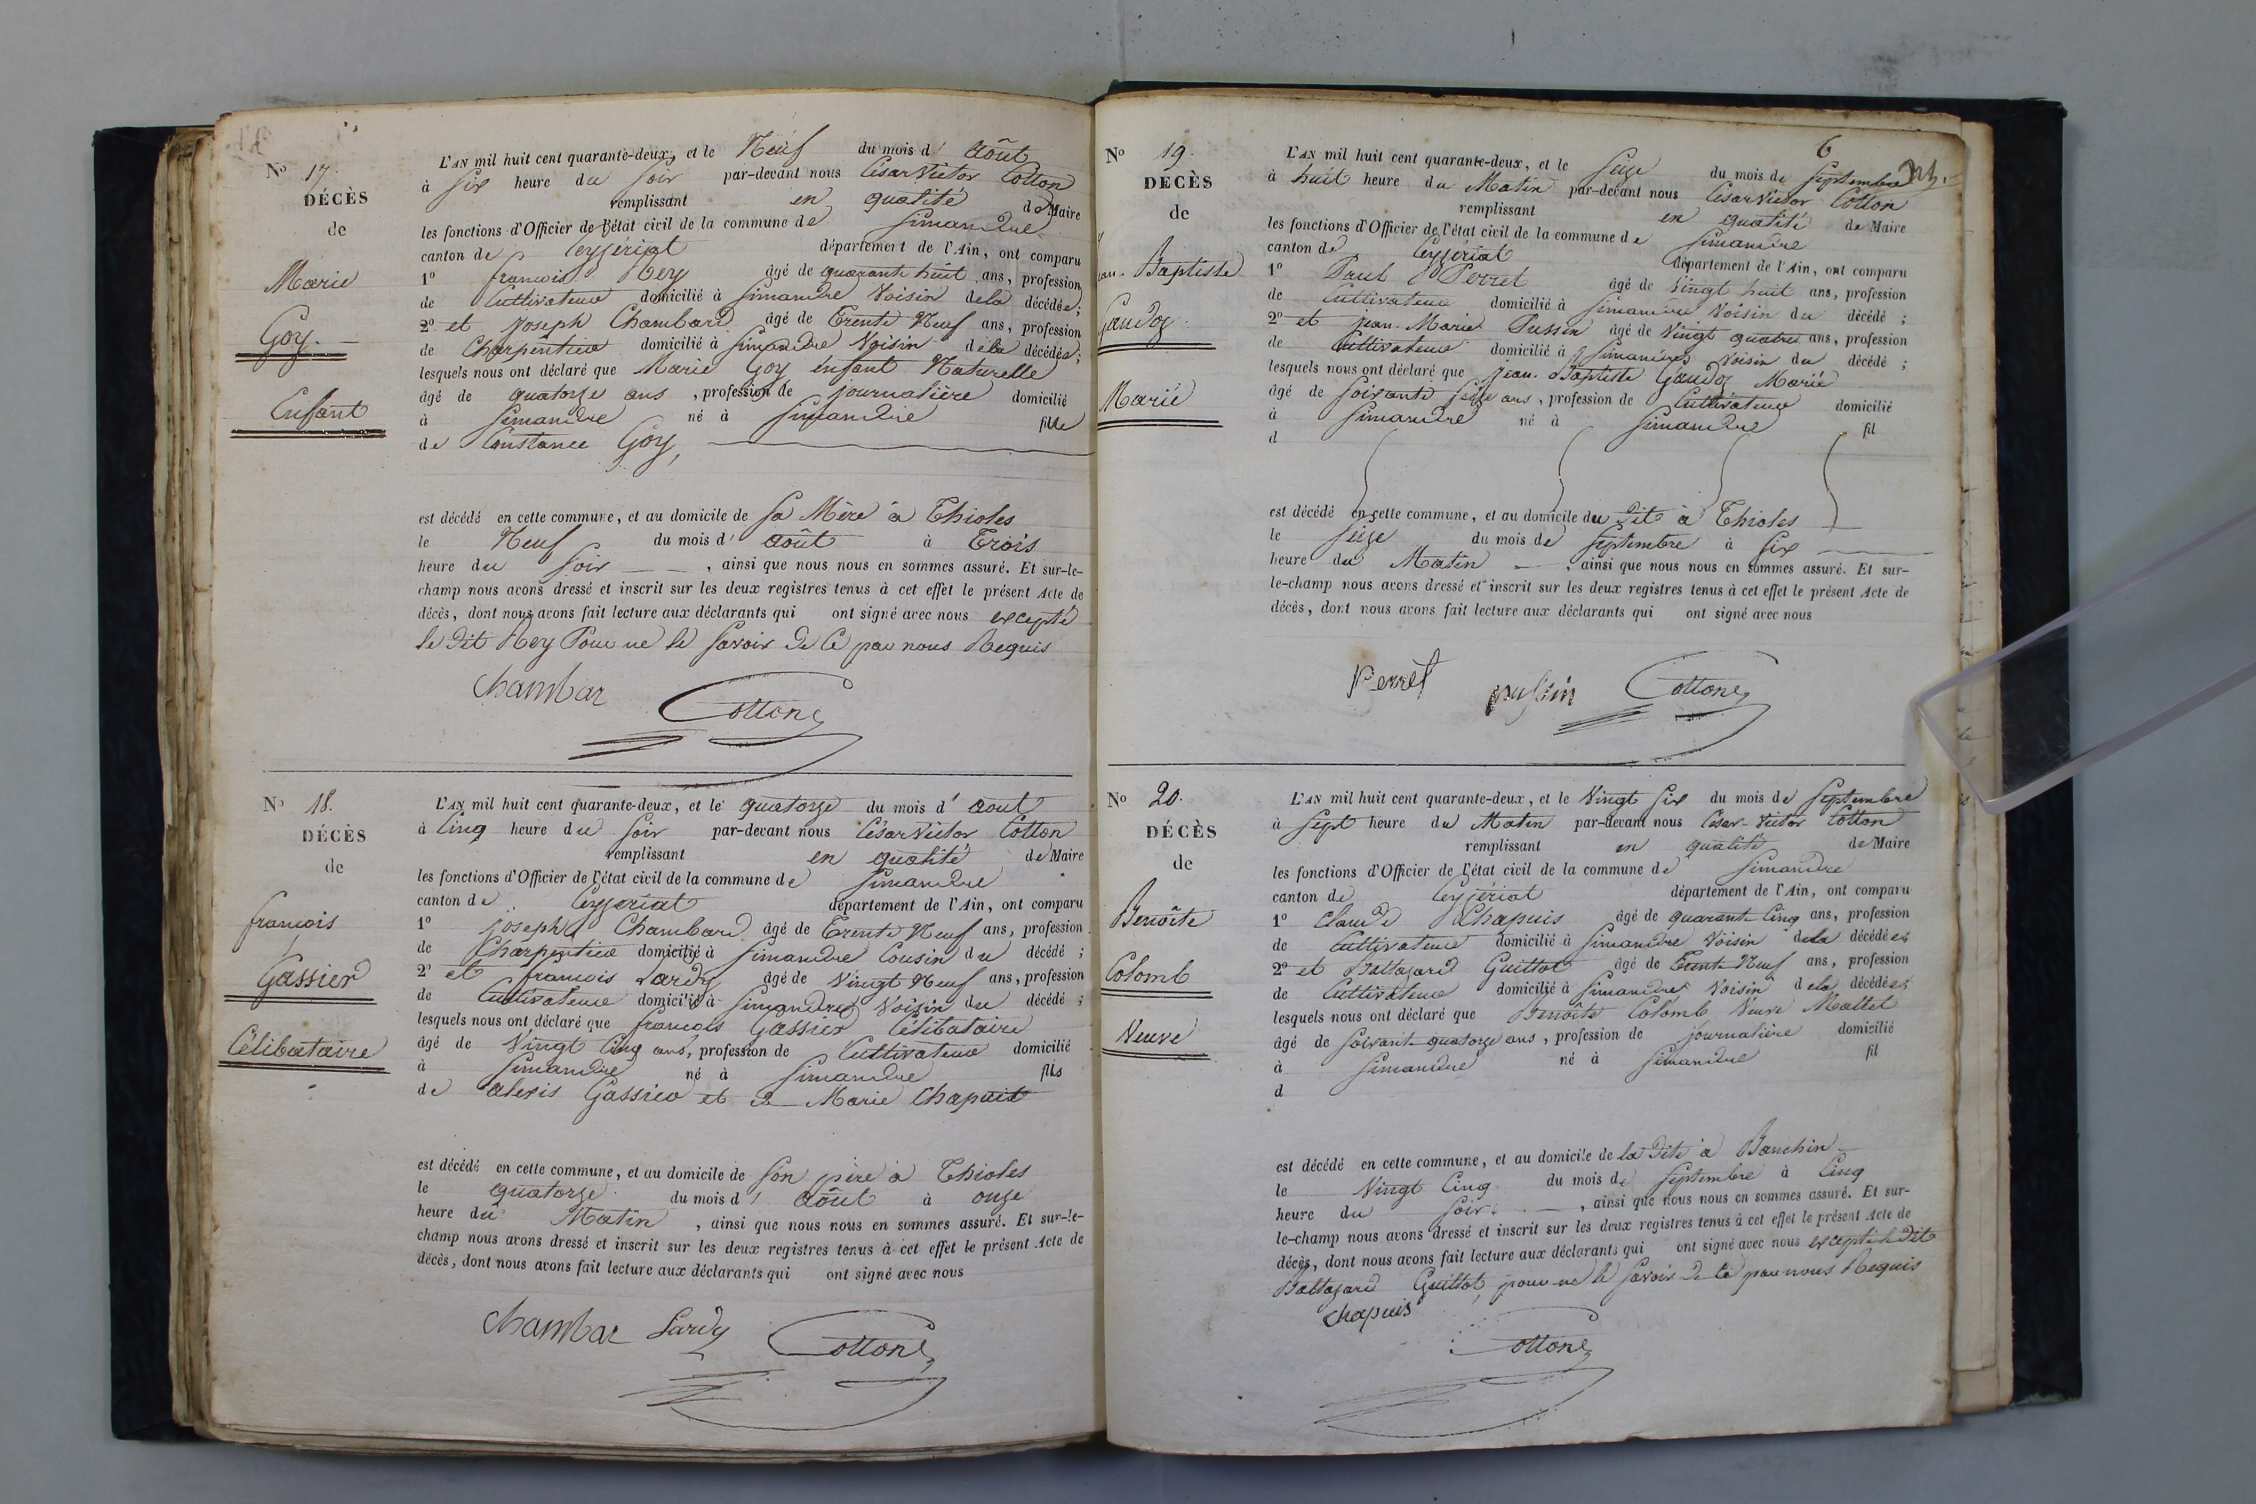 No 17.
DÉCÈS
de
Marie
Goy.
Enfant
L'AN mil huit cent quarante-deux, et le Neuf du mois d' Août
à six heure du soir par-devant nous César Victor Cotton
remplissant en qualité de Maire
les fonctions d'Officier de l'état civil de la commune de Simandre
canton de Ceyzériat département de l'Ain, ont comparu
1o françois Rey âgé de quarante huit ans, profession
de Cultivateur domicilié à Simandre Voisin de la décédée;
2o et Joseph Chambard âgé de Trente Neuf ans, profession
de Charpentier domicilié à Simandre Voisin de la décédée;
lesquels nous ont déclaré que Marie Goy enfant Naturelle
âgé de quatorze ans, profession de journalière domicilié
à Simandre né à Simandre fille
de Constance Goy,
est décédé en cette commune, et au domicile de sa Mère à Thioles
le Neuf du mois d' août à Trois
heure du soir, ainsi que nous nous en sommes assuré. Et sur-le-
champ nous avons dressé et inscrit sur les deux registres tenus à cet effet le présent Acte de
décès, dont nous avons fait lecture aux déclarants qui ont signé avec nous excepté
le dit Rey Pour ne le savoir de ce par nous Requis
Chambar Cotton
No 18.
DÉCÈS
de
françois
Gassier
Célibataire
L'AN mil huit cent quarante-deux, et le quatorze du mois d' aout
à Cinq heure du soir par-devant nous César Victor Cotton
remplissant en qualité de Maire
les fonctions d'Officier de l'état civil de la commune de Simandre
canton de Ceyzeriat département de l'Ain, ont comparu
1o joseph Chambard âgé de Trente Neuf ans, profession
de Charpentier domicilié à Simandre Cousin du décédé;
2o et françois Lardy âgé de Vingt Neuf ans, profession
de Cultivateur domicilié à Simandre Voisin du décédé;
lesquels nous ont déclaré que françois Gassier Célibataire
âgé de Vingt Cinq ans, profession de Cultivateur domicilié
à Simandre né à Simandre fils
de alexis Gassier et de Marie Chapuit
est décédé en cette commune, et au domicile de son père à Thioles
le quatorze du mois d' Août à onze
heure du Matin, ainsi que nous nous en sommes assuré. Et sur-le-
champ nous avons dressé et inscrit sur les deux registres tenus à cet effet le présent Acte de
décès, dont nous avons fait lecture aux déclarants qui ont signé avec nous
Chambar Lardy Cotton
6
No 19.
DÉCÈS
de
Baptiste
Gaudoz
Marié
L'AN mil huit cent quarante-deux, et le seize du mois de septembre
à huit heure du Matin par-devant nous César Victor Cotton
remplissant en qualité de Maire
les fonctions d'Officier de l'état civil de la commune de Simandre
canton de Ceyzériat département de l'Ain, ont comparu
1o Paul Perret âgé de Vingt huit ans, profession
de Cultivateur domicilié à Simandre Voisin du décédé;
2o et jean-Marie Pussin âgé de Vingt quatre ans, profession
de Cultivateur domicilié à Simandre Voisin du décédé;
lesquels nous ont déclaré que jean-Baptiste Gaudoz Marié
âgé de soixante seize ans, profession de Cultivateur domicilié
à Simandre né à Simandre fil
d
est décédé en cette commune, et au domicile du dit à Thioles
le seize du mois de septembre à six
heure du Matin, ainsi que nous nous en sommes assuré. Et sur-
le-champ nous avons dressé et inscrit sur les deux registres tenus à cet effet le présent Acte de
décès, dont nous avons fait lecture aux déclarants qui ont signé avec nous
Perret pussin Cotton
No 20.
DÉCÈS
de
Benoîte
Colomb
Veuve
L'AN mil huit cent quarante-deux, et le Vingt six du mois de septembre
à sept heure du Matin par-devant nous César-Victor Cotton
remplissant en qualité de Maire
les fonctions d'Officier de l'état civil de la commune de Simandre
canton de Ceyzériat département de l'Ain, ont comparu
1o Claude Chapuis âgé de quarante Cinq ans, profession
de Cultivateur domicilié à Simandre Voisin de la décédée;
2o et Baltazard Guittot âgé de Trente Neuf ans, profession
de Cultivateur domicilié à Simandre Voisin de la décédée;
lesquels nous ont déclaré que Benoîte Colomb Veuve Mattet
âgé de soixante quatorze ans, profession de journalière domicilié
à Simandre né à Simandre fil
d
est décédé en cette commune, et au domicile de la dite à Banchin
le Vingt Cinq du mois de septembre à Cinq
heure du soir, ainsi que nous nous en sommes assuré. Et sur-
le-champ nous avons dressé et inscrit sur les deux registres tenus à cet effet le présent Acte de
décès, dont nous avons fait lecture aux déclarants qui ont signé avec nous excepté le dit
Baltazard Guittot, pour ne le savoir de ce par nous Requis
Chapuis
Cotton